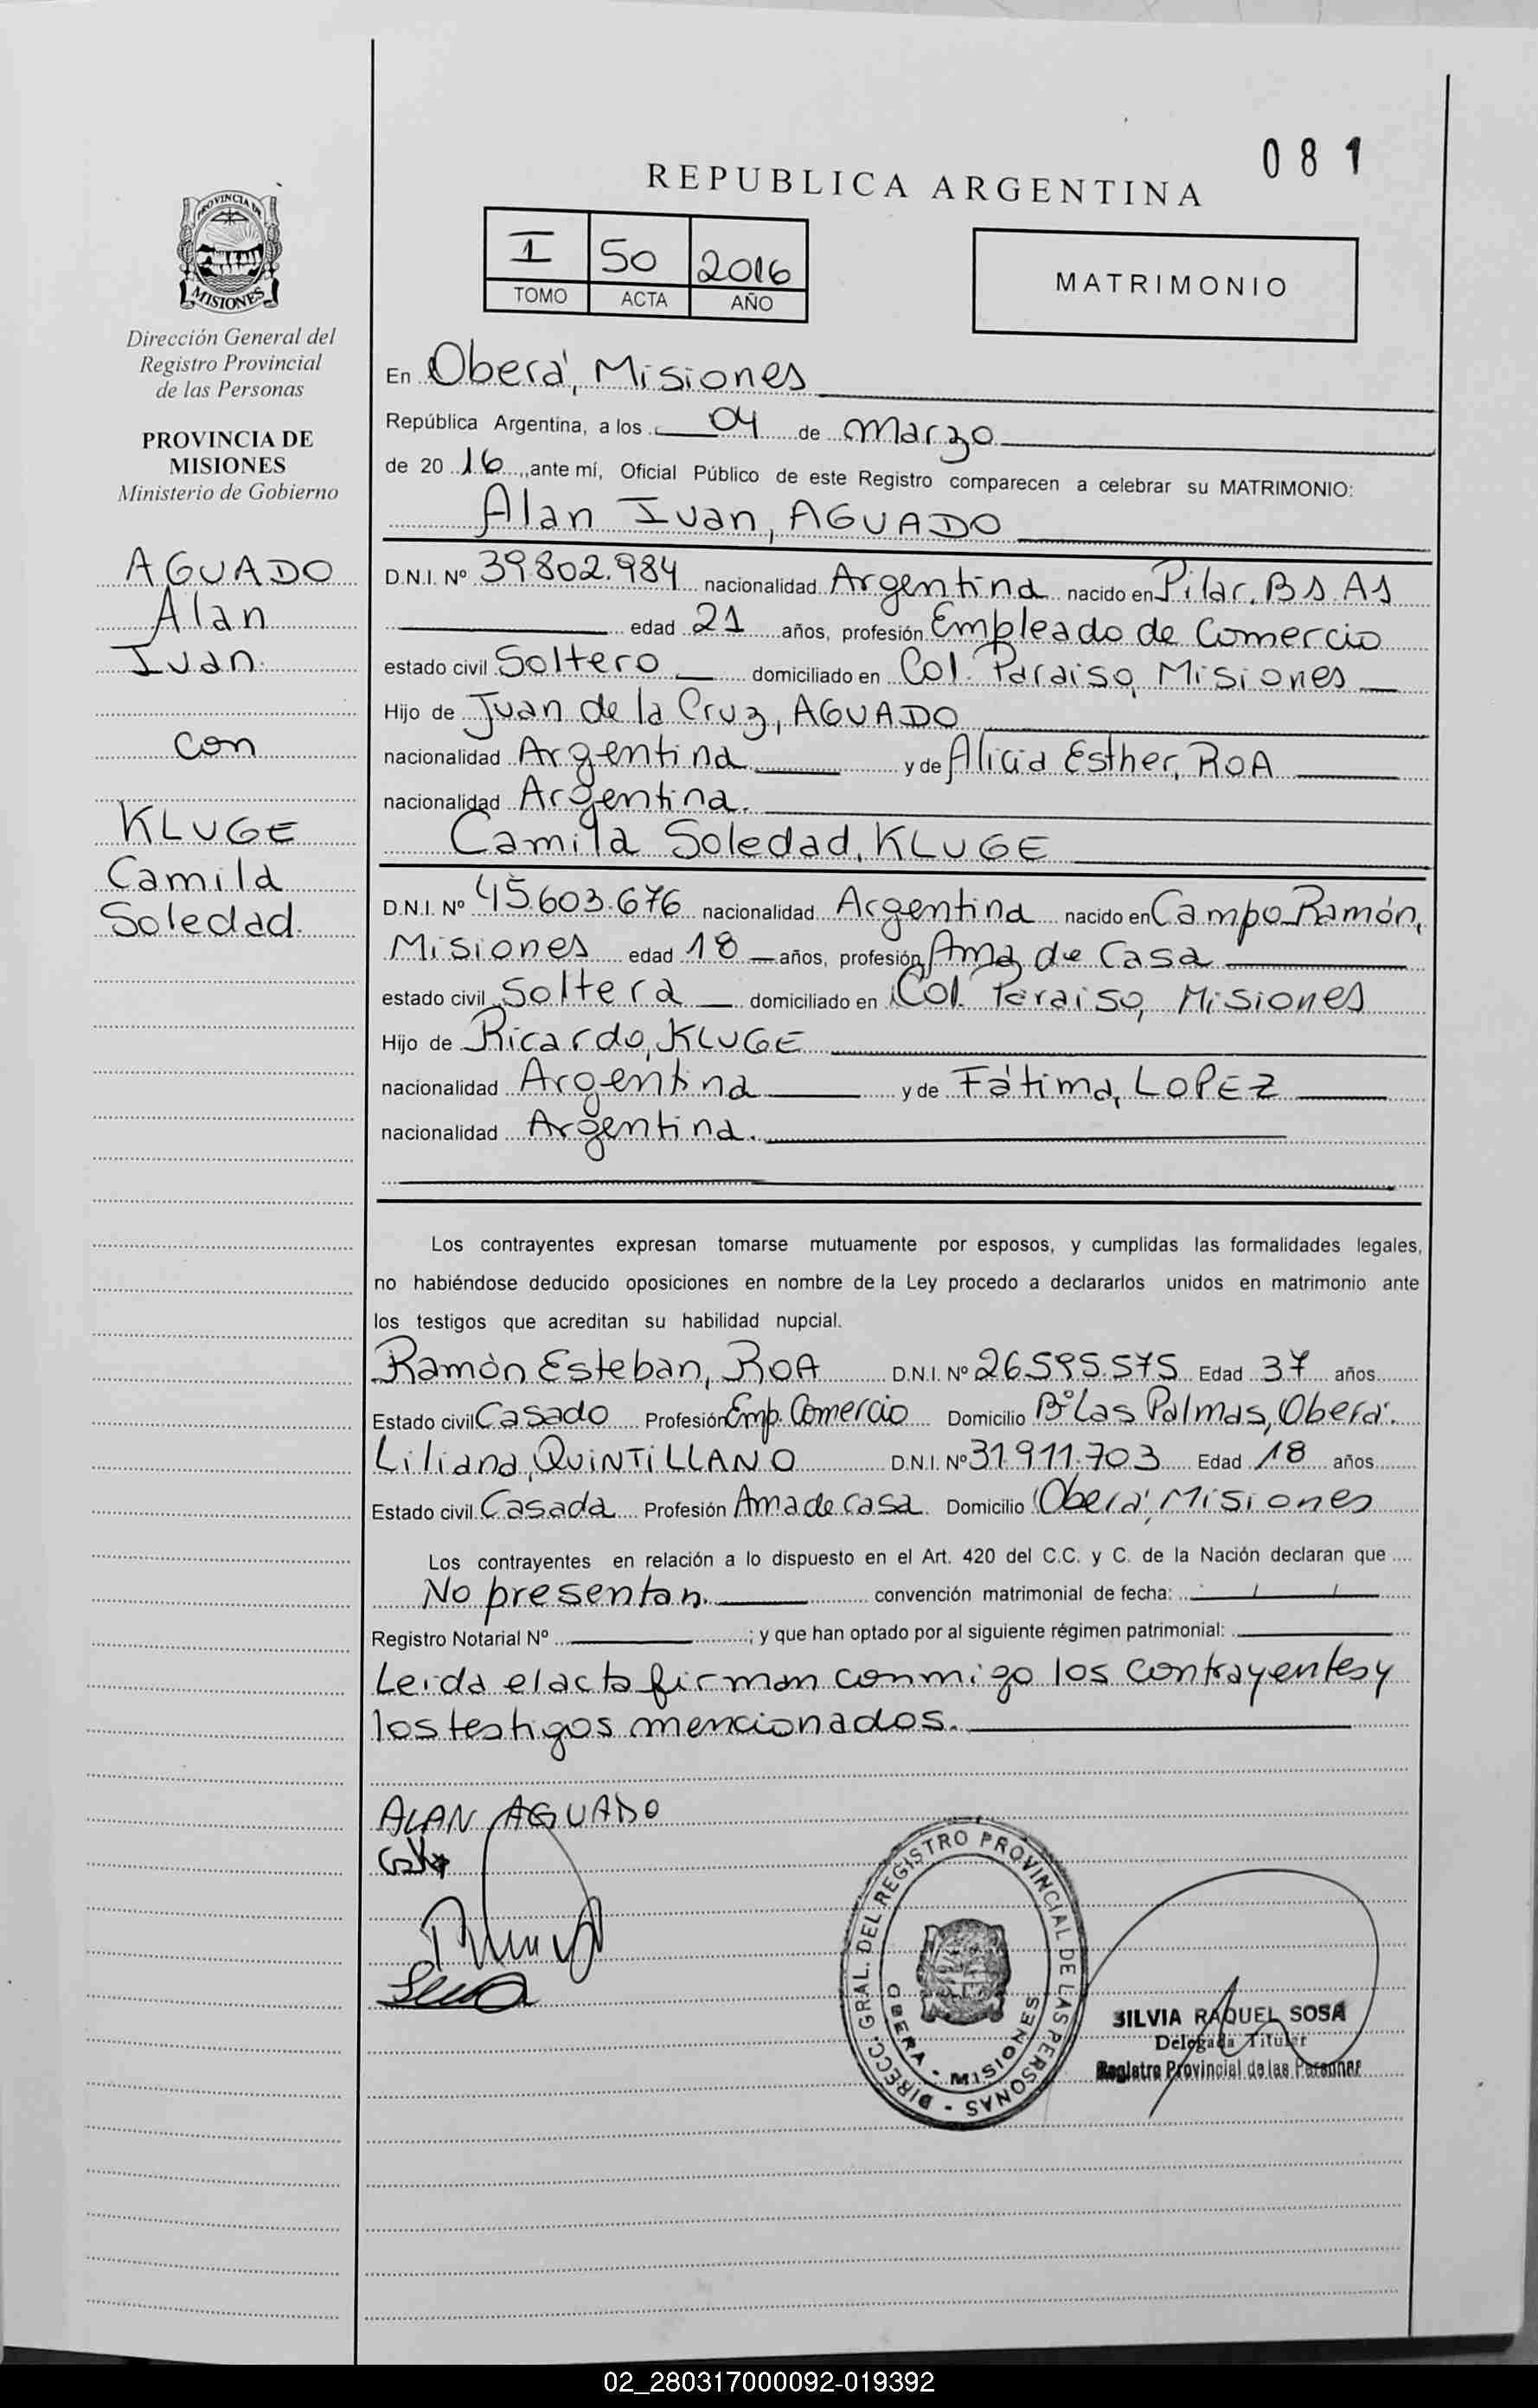 081
REPUBLICA ARGENTINA
I 50 2016
TOMO ACTA AÑO
MATRIMONIO
PROVINCIA DE
MISIONES
Dirección General del
Registro Provincial
de las Personas
PROVINCIA DE
MISIONES
Ministerio de Gobierno
AGUADO
Alan
Ivan.
con
KLUGE
Camila
Soledad.
En Oberá, Misiones
República Argentina, a los 04 de marzo
de 20 16, ante mí, Oficial Público de este Registro comparecen a celebrar su MATRIMONIO:
Alan Ivan, AGUADO
D.N.I. Nº 39.802.984 nacionalidad Argentina nacido en Pilar. BS AS
edad 21 años, profesión Empleado de Comercio
estado civil Soltero domiciliado en Col. Paraiso, Misiones
Hijo de Juan de la Cruz, AGUADO
nacionalidad Argentina y de Alicia Esther, ROA
nacionalidad Argentina.
Camila Soledad, KLUGE
D.N.I. Nº 45.603.676 nacionalidad Argentina nacido en Campo Ramón,
Misiones edad 18 años, profesión Ama de Casa
estado civil Soltera domiciliado en Col. Paraiso, Misiones
Hijo de Ricardo, KLUGE
nacionalidad Argentina y de Fátima, LOPEZ
nacionalidad Argentina.
Los contrayentes expresan tomarse mutuamente por esposos, y cumplidas las formalidades legales,
no habiéndose deducido oposiciones en nombre de la Ley procedo a declararlos unidos en matrimonio ante
los testigos que acreditan su habilidad nupcial.
Ramón Esteban, ROA D.N.I. Nº 26.595.575 Edad 37 años
Estado civil Casado Profesión Emp. Comercio Domicilio Bº Las Palmas, Oberá.
Liliana, QUINTILLANO D.N.I. Nº 31.911.703 Edad 18 años
Estado civil Casada Profesión Ama de casa Domicilio Oberá, Misiones
Los contrayentes en relación a lo dispuesto en el Art. 420 del C.C. y C. de la Nación declaran que
No presentan. convención matrimonial de fecha: / /
Registro Notarial Nº ; y que han optado por al siguiente régimen patrimonial:
Leida el acta firman conmigo los contrayentes y
los testigos mencionados.
ALAN AGUADO
DIRECC. GRAL. DEL REGISTRO PROVINCIAL DE LAS PERSONAS -
OBERA - MISIONES
SILVIA RAQUEL SOSA
Delegada Titular
Registro Provincial de las Personas
02_280317000092-019392